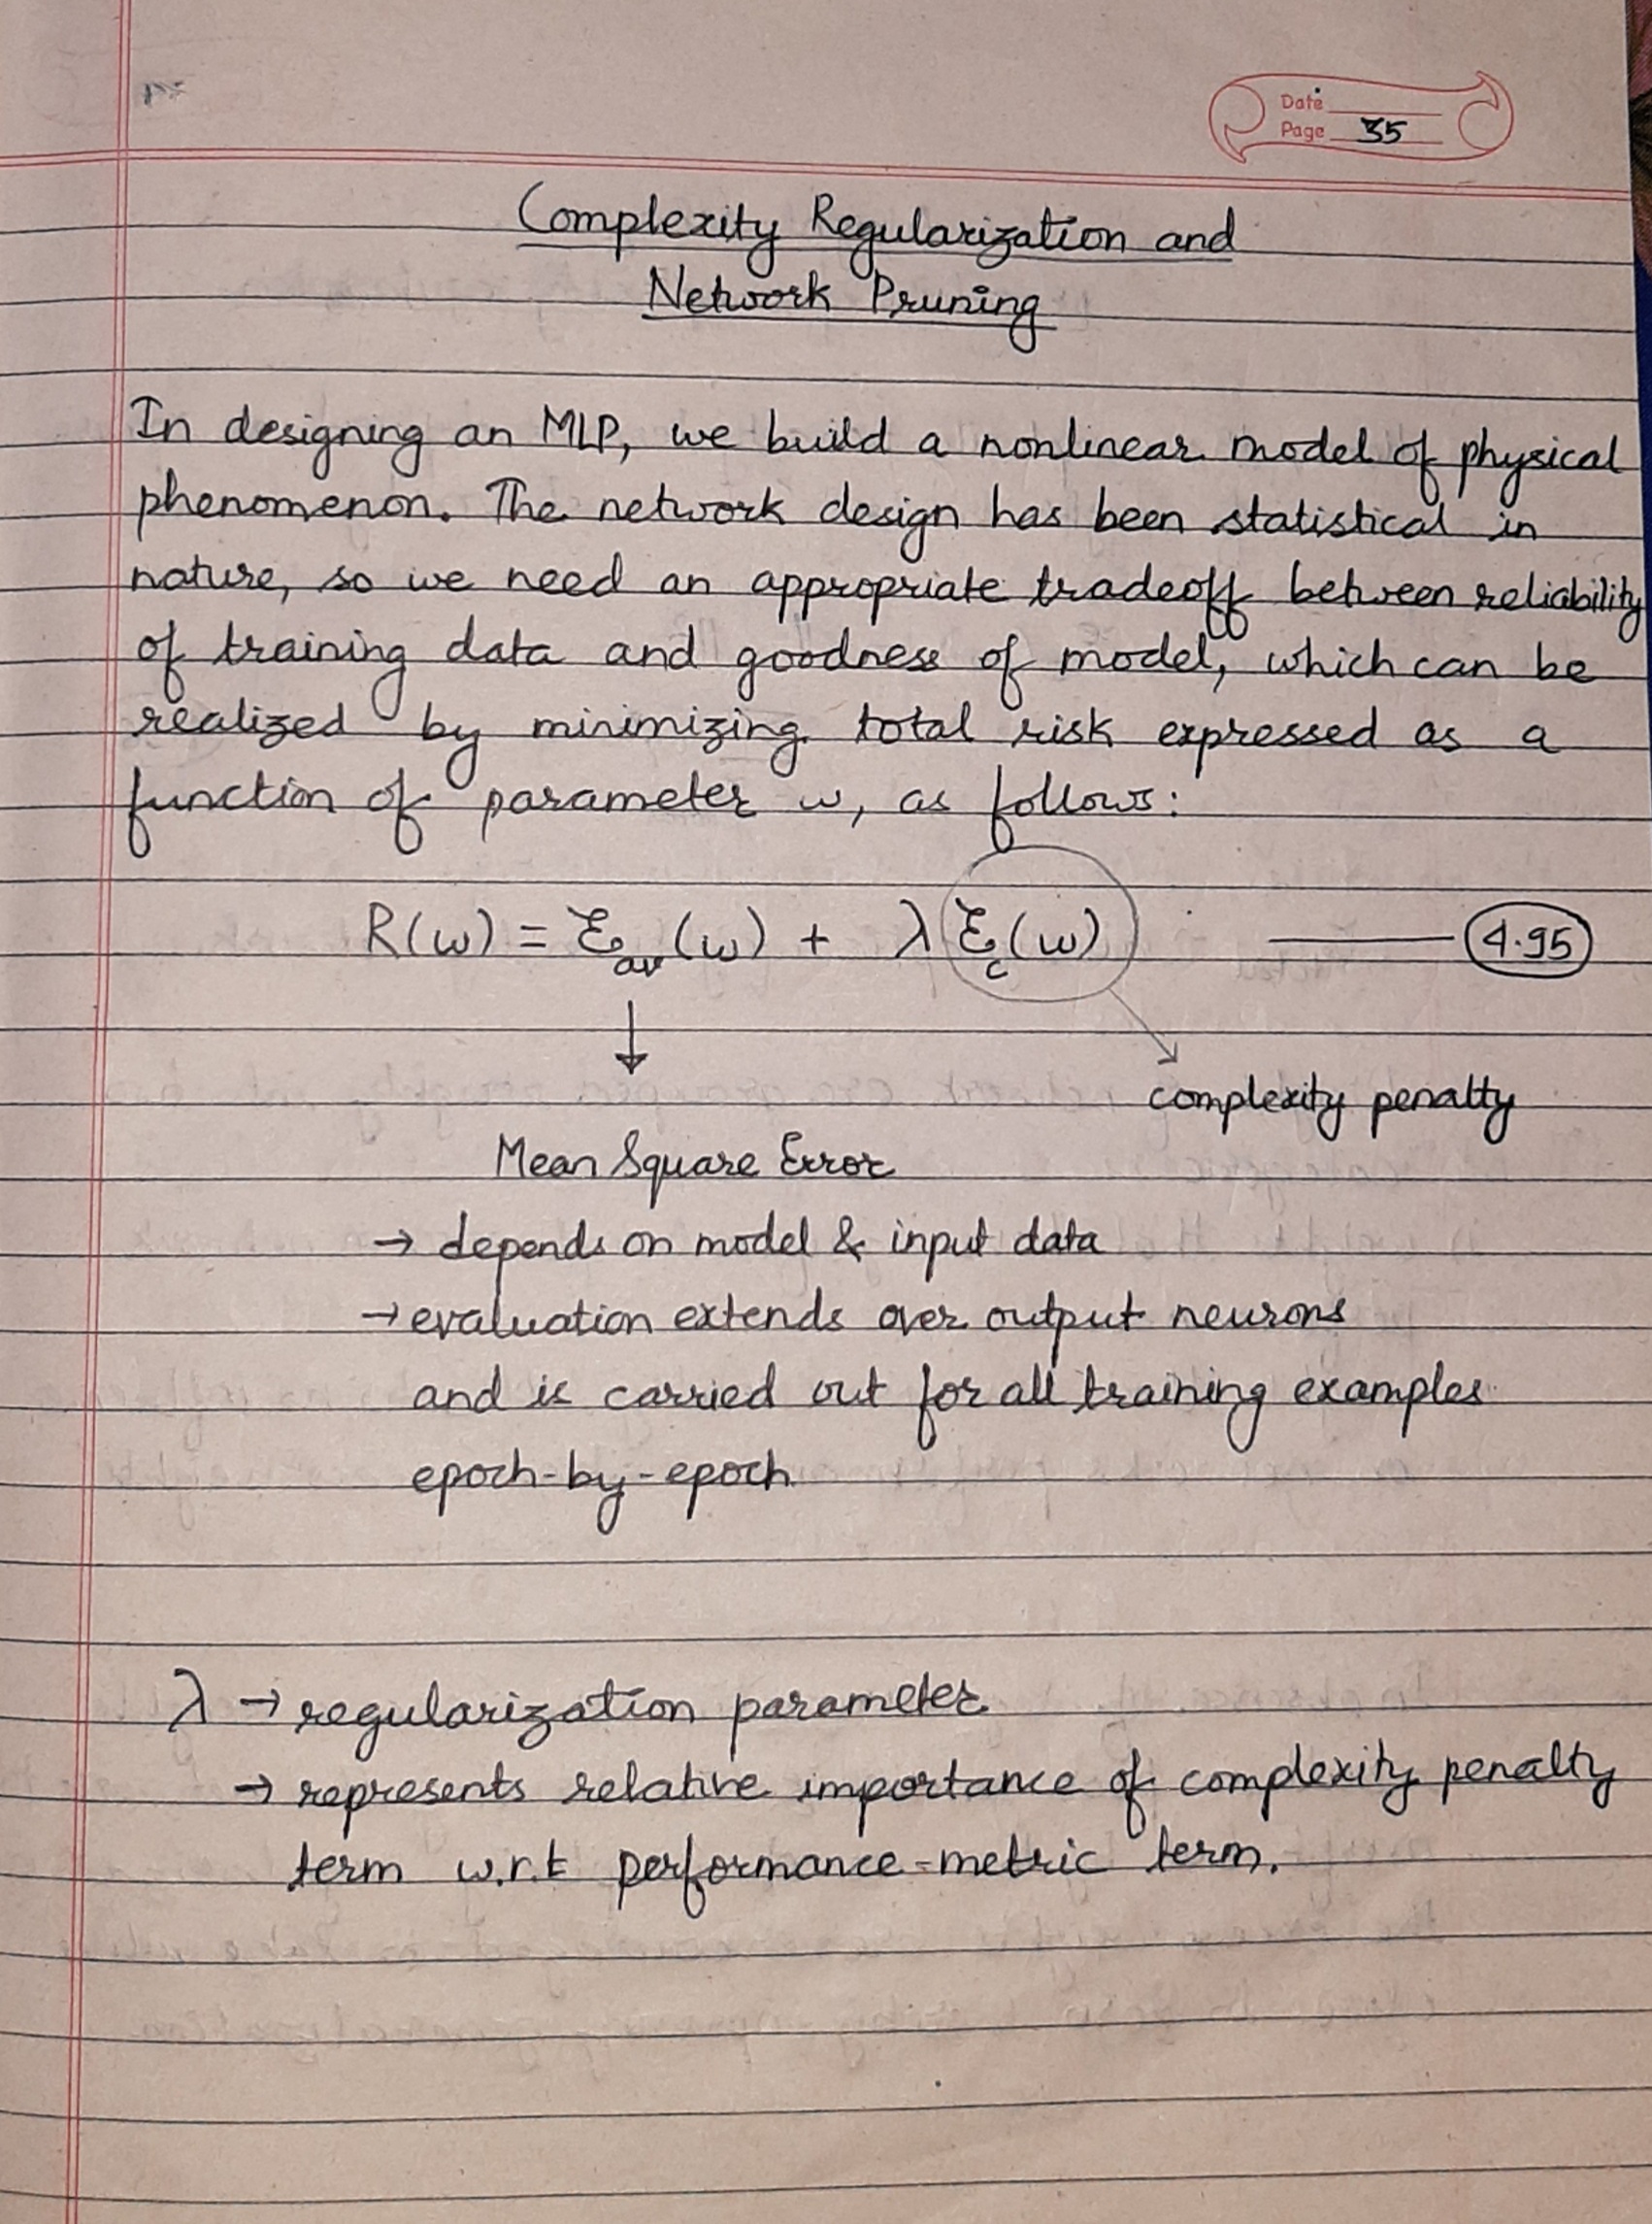 Date
Page 35
Complexity Regularization and
Network Pruning
In designing an MLP, we build a nonlinear model of physical
phenomenon. The network design has been statistical in
nature, so we need an appropriate tradeoff between reliability
of training data and goodness of model, which can be
realized by minimizing total risk expressed as a
function of parameter w, as follows:
R(w) = ℰav(w) + λ ℰc(w) 4.95
complexity penalty
Mean Square Error
→ depends on model & input data
→ evaluation extends over output neurons
and is carried out for all training examples
epoch-by-epoch
λ → regularization parameter
→ represents relative importance of complexity penalty
term w.r.t performance-metric term.